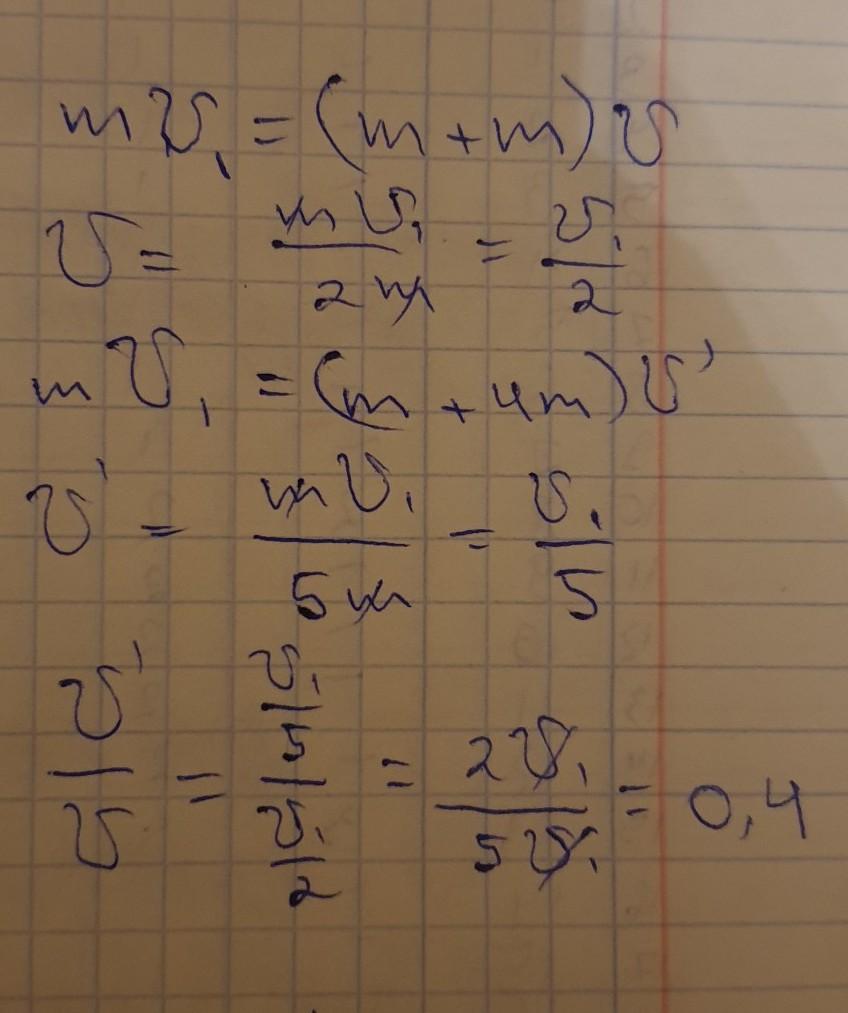 mυ₁ = (m + m) υ
υ = mυ₁/2m = υ₁/2
mυ₁ = (m + 4m) υ'
υ' = mυ₁/5m = υ₁/5
υ'/υ = (υ₁/5)/(υ₁/2) = 2υ₁/5υ₁ = 0,4